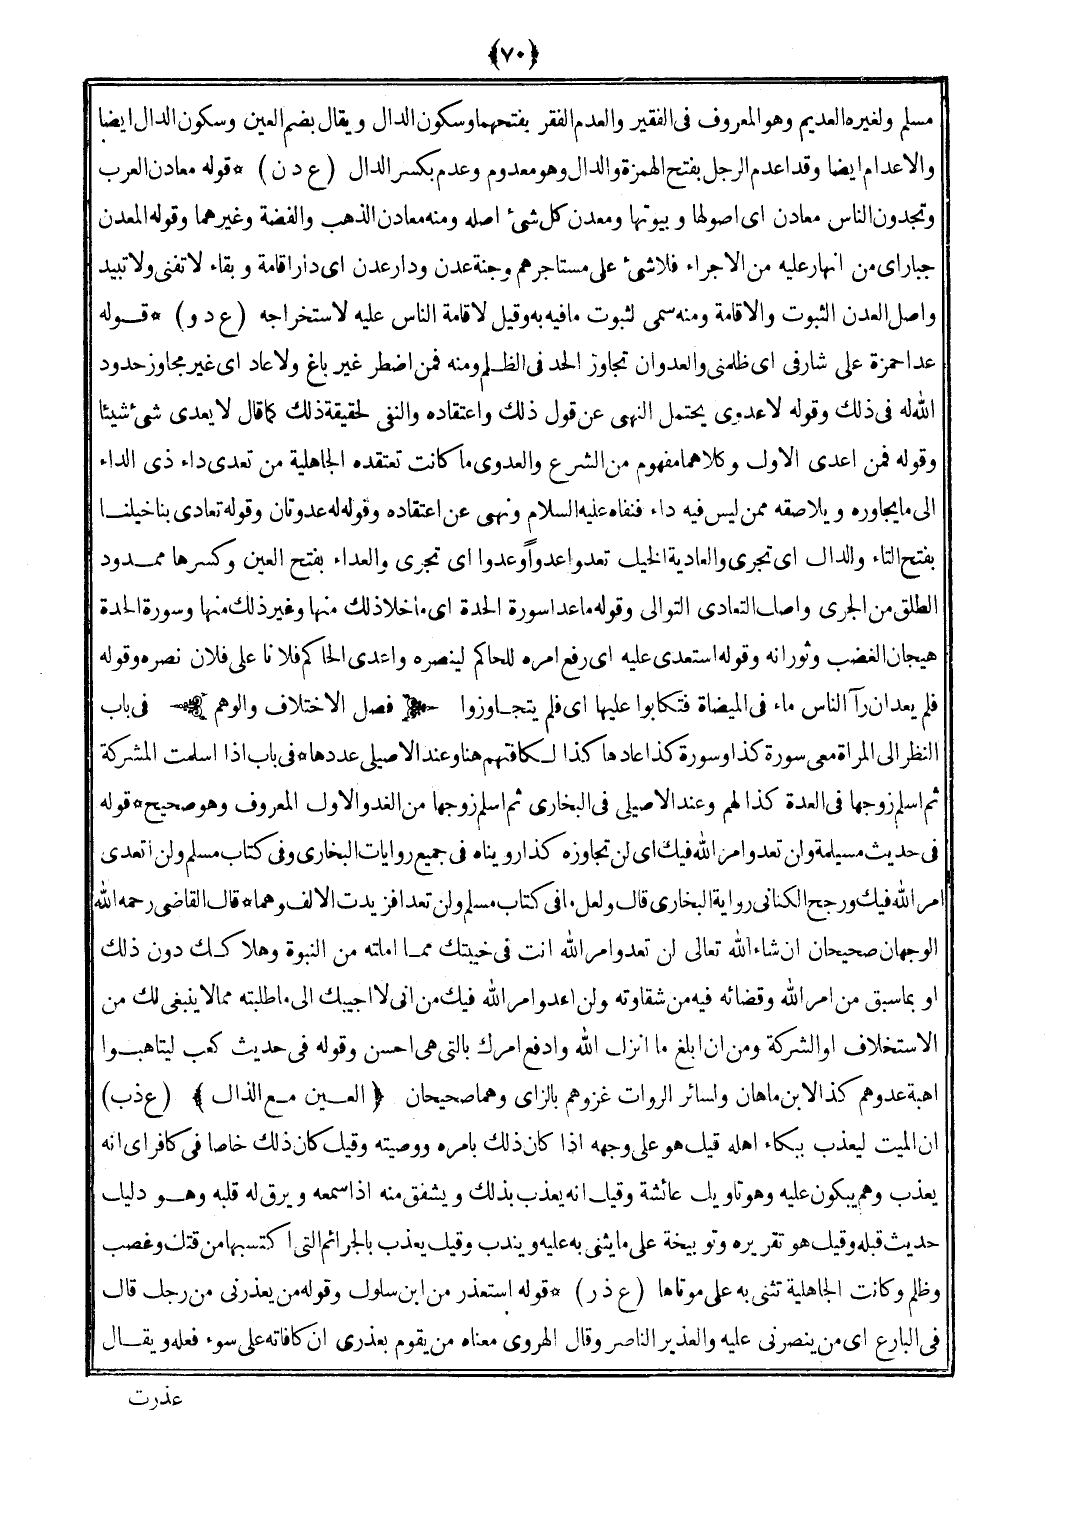 ﴿٧٠﴾
مسلم ولغيره العديم وهو المعروف فى الفقير والعدم الفقر بفتحهما وسكون الدال ويقال بضم العين وسكون الدال ايضا
والاعدام ايضا وقد اعدم الرجل بفتح الهمزة والدال وهو معدوم وعدم بكسر الدال (ع د ن) *قوله معادن العرب
وتجدون الناس معادن اى اصولها وبيوتها ومعدن كل شئ اصله ومنه معادن الذهب والفضة وغيرهما وقوله المعدن
جبار اى من انهار عليه من الاجراء فلاشئ على مستاجرهم وجنة عدن ودار عدن اى دار اقامة وبقاء لا تفنى ولا تبيد
واصل العدن الثبوت والاقامة ومنه سمى لثبوت مافيه به وقيل لاقامة الناس عليه لاستخراجه (ع د و) *قوله
عدا حمزة على شارفى اى ظلمنى والعدوان تجاوز الحد فى الظلم ومنه فمن اضطر غير باغ ولا عاد اى غير مجاوز حدود
الله له فى ذلك وقوله لا عدوى يحتمل النهى عن قول ذلك واعتقاده والنفى لحقيقة ذلك كما قال لا يعدى شئ شيئا
وقوله فمن اعدى الاول وكلاهما مفهوم من الشرع والعدوى ما كانت تعتقده الجاهلية من تعدى داء ذى الداء
الى ما يجاوره ويلاصقه ممن ليس فيه داء فنفاه عليه السلام ونهى عن اعتقاده وقوله له عدوتان وقوله تعادى بنا خيلنا
بفتح التاء والدال اى تجرى والعادية الخيل تعدوا عدواً وعدوا اى تجرى والعداء بفتح العين وكسرها ممدود
الطلق من الجرى واصل التعادى التوالى وقوله ما عدا سورة الحدة اى ما خلا ذلك منها وغير ذلك منها وسورة الحدة
هيجان الغضب وثورانه وقوله استعدى عليه اى رفع امره للحاكم لينصره واعدى الحاكم فلانا على فلان نصره وقوله
فلم يعد ان رآ الناس ماء فى الميضاة فتكابوا عليها اى فلم يتجاوزوا ﴿فصل الاختلاف والوهم﴾ فى باب
النظر الى المراة معى سورة كذا وسورة كذا عادها كذا لكافتهم هنا وعند الاصيلى عددها* فى باب اذا اسلمت المشركة
ثم اسلم زوجها فى العدة كذا لهم وعند الاصيلى فى البخارى ثم اسلم زوجها من الغد والاول المعروف وهو صحيح* قوله
فى حديث مسيلمة ولن تعدوا امر الله فيك اى لن تجاوزه كذا رويناه فى جميع روايات البخارى وفى كتاب مسلم ولن اتعدى
امر الله فيك ورجح الكنانى رواية البخارى قال ولعل ما فى كتاب مسلم ولن تعدا فزيدت الالف وهما* قال القاضى رحمه الله
الوجهان صحيحان ان شاء الله تعالى لن تعدوا امر الله انت فى خيبتك مما املته من النبوة وهلاكك دون ذلك
او بما سبق من امر الله وقضائه فيه من شقاوته ولن اعدوا امر الله فيك من انى لا اجيبك الى ما طلبته مما لا ينبغى لك من
الاستخلاف او الشركة ومن ان ابلغ ما انزل الله وادفع امرك بالتى هى احسن وقوله فى حديث كعب ليتاهبوا
اهبة عدوهم كذا لابن ماهان ولسائر الروات غزوهم بالزاى وهما صحيحان ﴿العين مع الذال﴾ (ع ذ ب)
ان الميت ليعذب ببكاء اهله قيل هو على وجهه اذا كان ذلك بامره ووصيته وقيل كان ذلك خاصا فى كافر اى انه
يعذب وهم يبكون عليه وهو تاويل عائشة وقيل انه يعذب بذلك ويشفق منه اذا سمعه ويرق له قلبه وهو دليل
حديث قيله وقيل هو تقريره وتوبيخة على ما يثنى به عليه ويندب وقيل يعذب بالجرائم التى اكتسبها من قتل وغصب
وظلم وكانت الجاهلية تثنى به على موتاها (ع ذ ر) *قوله استعذر من ابن سلول وقوله من يعذرنى من رجل قال
فى البارع اى من ينصرنى عليه والعذير الناصر وقال الهروى معناه من يقوم بعذرى ان كافاته على سوء فعله ويقال
عذرت